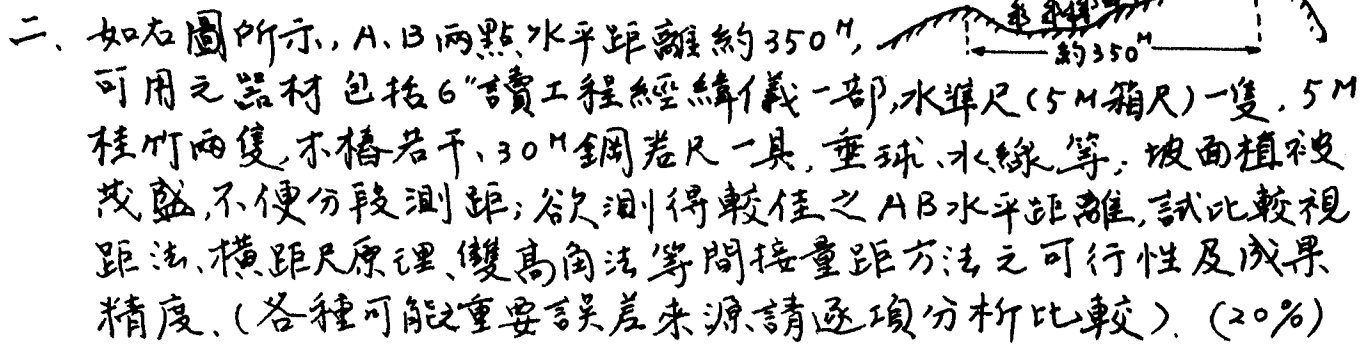 二、如右圖所示，A、B兩點水平距離約350ᴹ，
約350ᴹ
可用之器材包括6"讀工程經緯儀一部，水準尺(5M箱尺)一隻，5M
桂竹兩隻，木樁若干、30ᴹ鋼卷尺一具，垂球、水線等；坡面植被
茂盛，不便分段測距；欲測得較佳之AB水平距離，試比較視
距法、橫距尺原理、雙高角法等間接量距方法之可行性及成果
精度。(各種可能之重要誤差來源請逐項分析比較)。(20%)